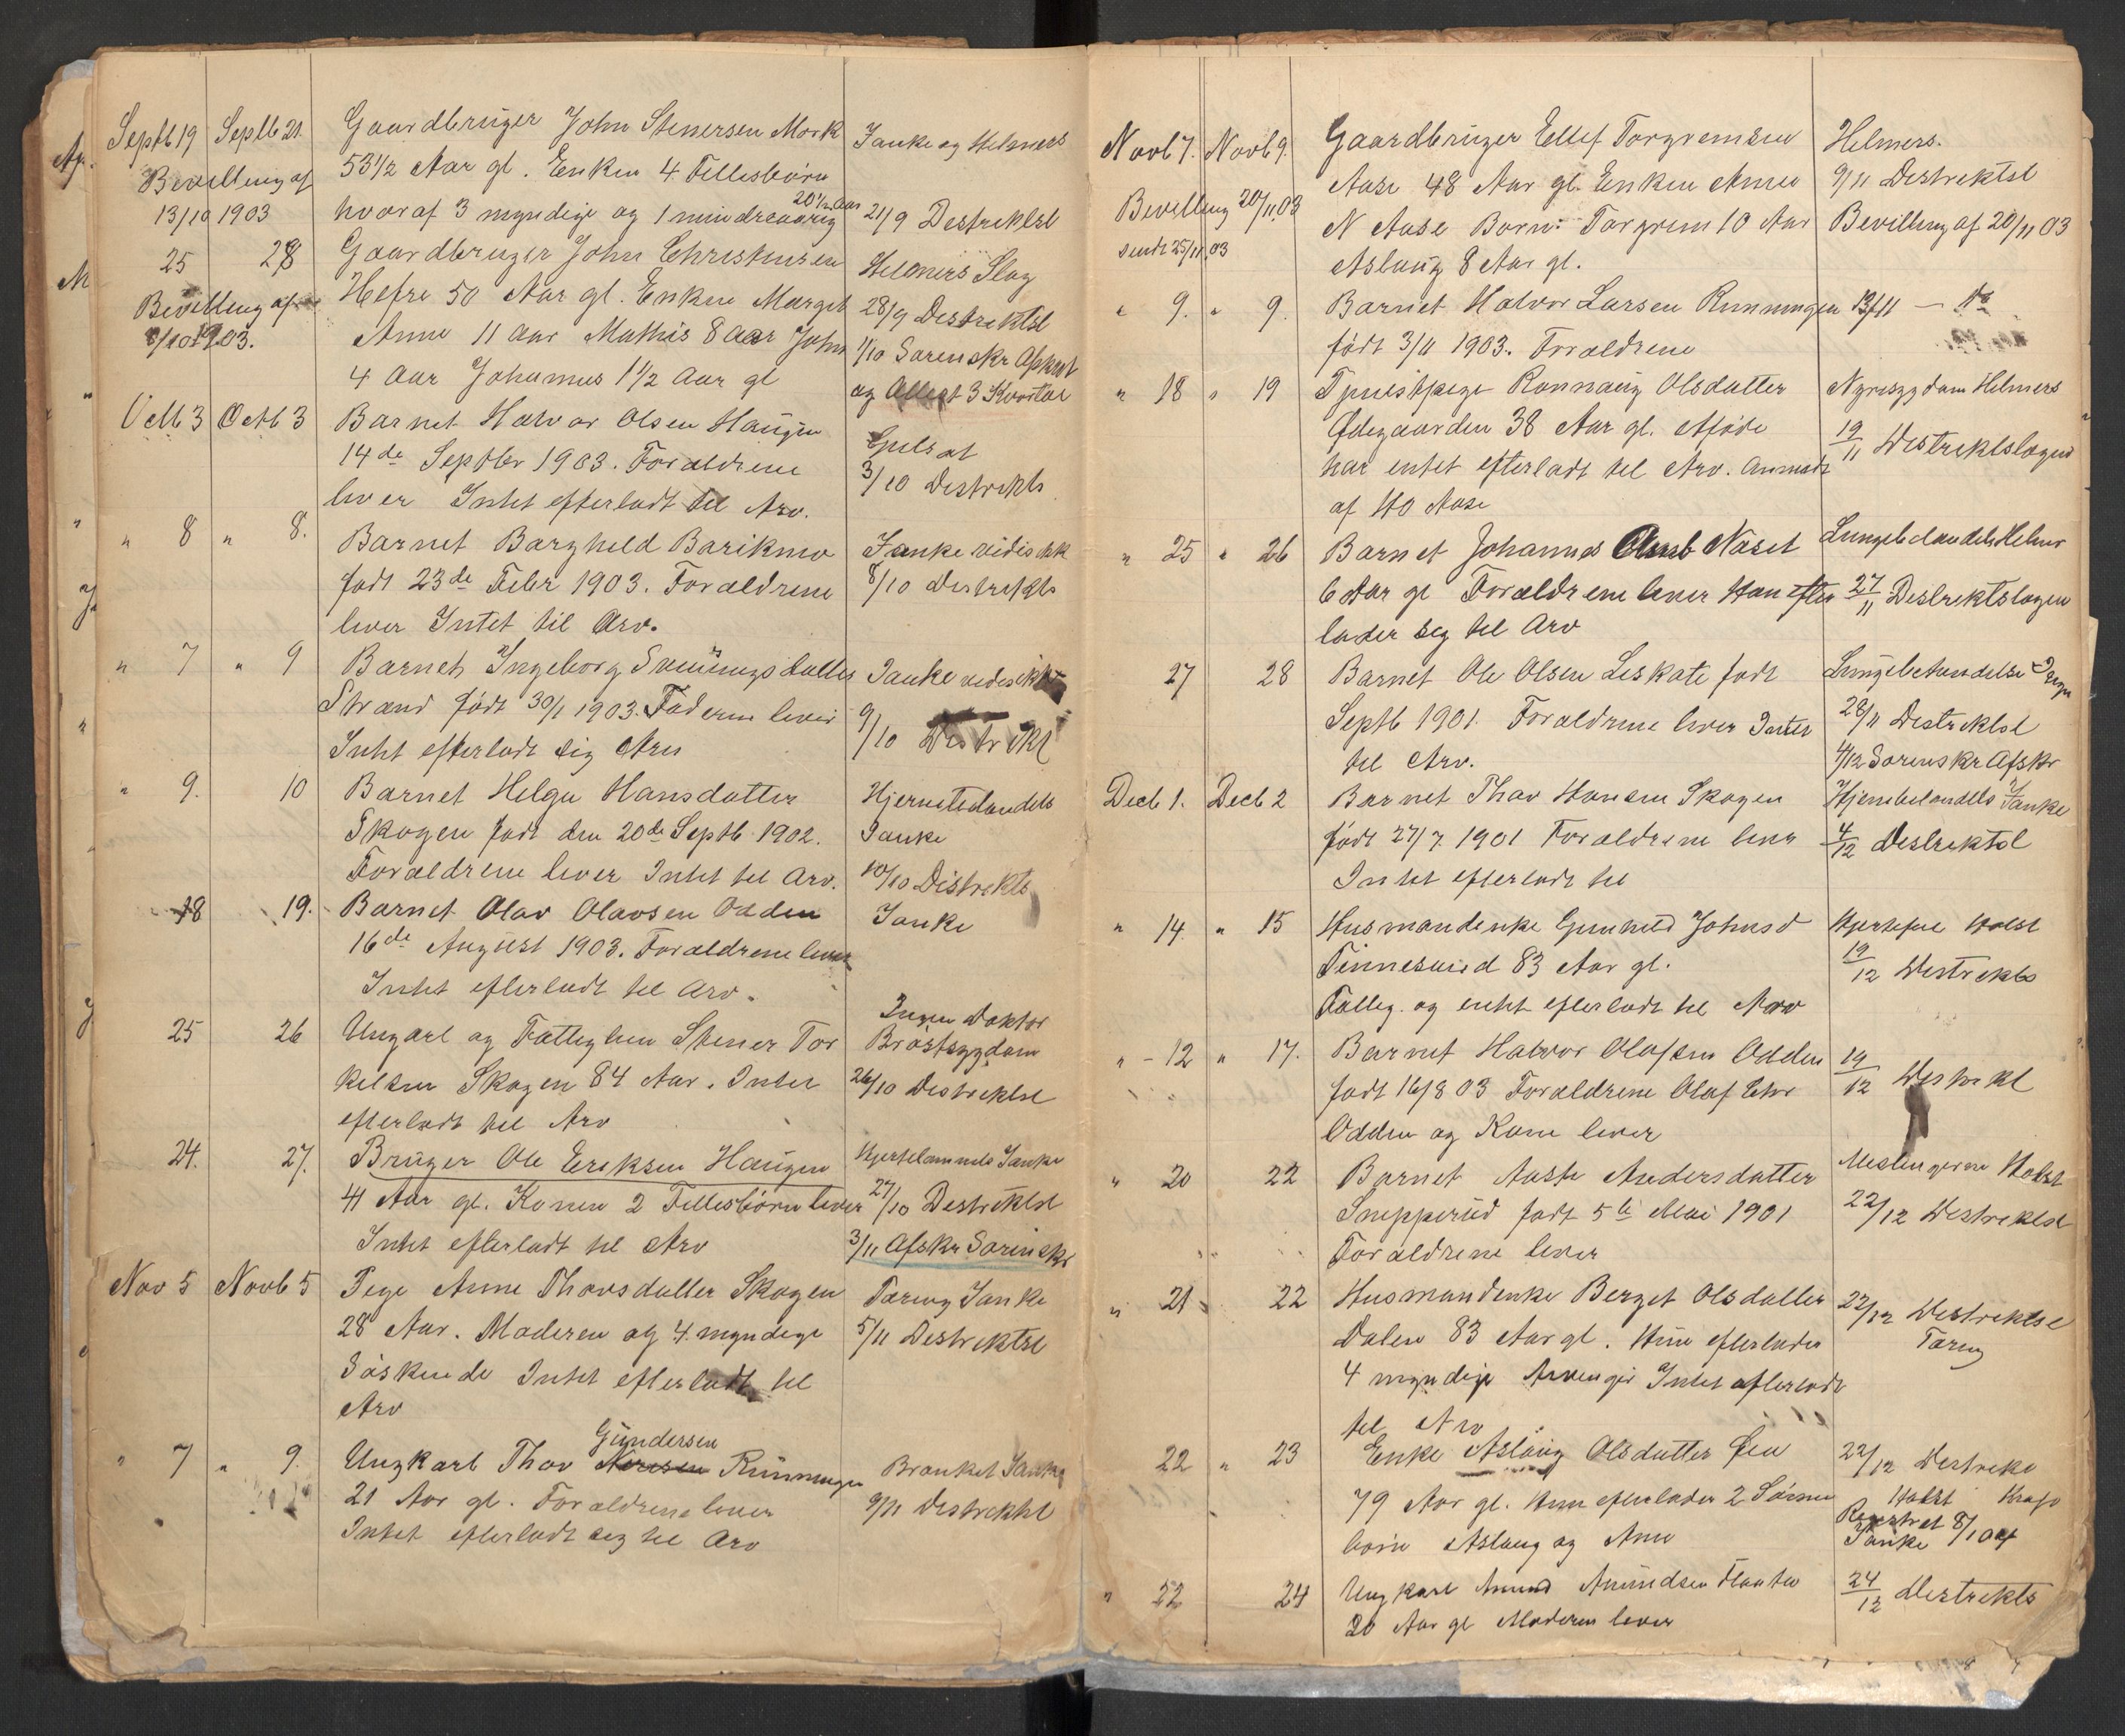 Septb 19 Septb 21. Gaardbruger John Stenersen Mork Janke og Helmers
Bevilling af 53 1/2 Aar gl. Enken 4 Fellesbörn
20 1/2 Aar
13/10 1903 hvoraf 3 myndige og 1 mindreaarig 21/9 Destriktsl
25 28 Gaardbruger John Christensen Helmers Slag
Bevilling af Hefre 50 Aar gl. Enken Margit 28/9 Destriktsl
8/10 1903. Anne 11 aar Mathis 8 aar John 1/10 Sorenskr Afskrt
4 Aar Johannes 1 1/2 Aar gl og Attest 3 Kvartal
Octb 3 Octb 3 Barnet Halvor Olsen Haugen
14de Septbr 1903. Forældrene 3/10 Destrikts
lever Intet efterladt til Arv.
" 8 " 8. Barnet Borghild Barikmo Janke
født 23de Febr 1903. Forældrene 8/10 Destrikts
lever Intet til Arv.
" 7 " 9 Barnet Ingeborg Sveinungsdatter Janke
Strand født 30/1 1903. Faderen lever 9/10 Destrikt
Intet efterladt sig Arv
" 9. 10 Barnet Helga Hansdatter
Skogen født den 20de Septb 1902. Janke
Forældrene lever Intet til Arv. 10/10 Distrikts
18 19. Barnet Olav Olavsen Odden Janke
16de August 1903. Forældrene lever
Intet efterladt til Arv.
Ingen Doktor
25 26 Ungkarl og Fattiglem Stener Tor Bröstsygdom
kilsen Skogen 84 Aar. Intet 26/10 Destriktsl
efterladt til Arv
24. 27. Bruger Ole Eriksen Haugen Janke
41 Aar gl. Konen 2 Fellesbörn lever 27/10 Destriktsl
Intet efterladt til Arv 3/11 Afskr Sorinskr
Nov 5 Novb 5 Pige Anne Thorsdatter Skogen Tæring Janke
28 Aar. Moderen og 4 myndige 5/11 Destriktsl
Söskende Intet efterladt til
Arv
Gundersen
" 7 " 9. Ungkarl Thov Runningen Bronket Janke
21 Aar gl. Forældrene lever 9/11 Destriktsl
Intet efterladt sig til Arv
Novb 7. Novb 9. Gaardbruger Ellef Torgrimsen Helmers.
Aase 48 Aar gl. Enken Anne 9/11 Destriktsl
Bevilling 20/11 03 N Aase Born: Torgrim 10 Aar Bevilling af 20/11 03
sendt 25/11 03 Aslaug 8 Aar gl.
" 9. " 9. Barnet Halvor Larsen Runningen 13/11 — Do
født 3/11 1903. Forældrene
" 18 " 19 Tjenestpige Ronnaug Olsdatter Nyresygdom Helmers
Ødegaarden 38 Aar gl. Aföde 19/11 Destriktslogen
har intet efterladt til Arv. Anmeldt
af HO Aase
" 25 " 26 Barnet Johannes Næset
6 Aar gl Forældrene lever Han efter 27/11 Destriktslogen
lader sig til Arv
27 28 Barnet Ole Olsen Liskate født Lungebetændelse
Septb 1901. Forældrene lever Intet 28/11 Destriktsl
til Arv. 4/12 Sorenskr Afskr
Decb 1. Decb 2 Barnet Thov Hansen Skogen Janke
født 27/7 1901 Forældrene lever 4/12 Destriktsl
Intet efterladt til
" 14. " 15 Husmandenke Gunhild Johnsd Hjertefeil Holst
Tinnesand 83 Aar gl. 19/12 Destrikts
Fattig. og intet efterladt til Arv
" - 12 " 17. Barnet Halvor Olafsen Odden 19/12 Destrikt
født 16/8 03 Forældrene Olaf Chr
Odden og Kone lever
" 20 22 Barnet Aaste Andersdatter Meslingerne Holst
Snipperud født 5te Mai 1901 22/12 Destriktsl
Forældrene lever
" 21 22 Husmandenke Berget Olsdatter 22/12 Destriktsl
Dalen 83 Aar gl. Hun efterlader Tæring
4 myndige Arvinger Intet efterladt
til Arv
22 " 23 Enke Aslaug Olsdatter Lia 22/12 Destrikts
79 Aar gl. Hun efterlader 2 Sönne Holst
börn Aslaug og Anne Janke 8/1 04
" 22 24 Ungkarl Amund Amundsen 24/12 Destrikts
20 Aar gl Moderen lever